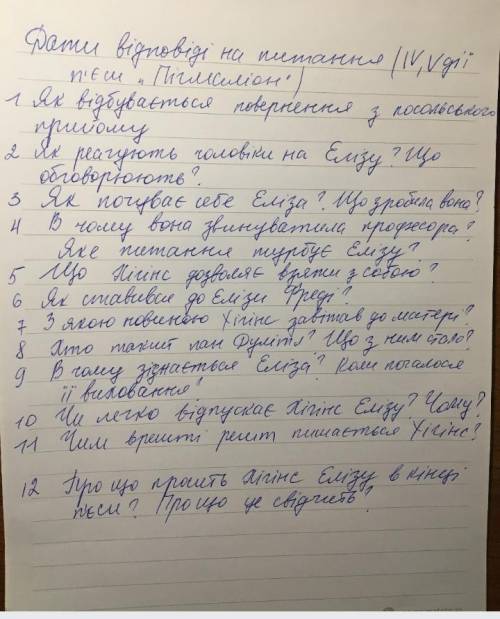 Дати відповіді на питання (IV, V дії
п'єси „Пігмаліон")
1 Як відбувається повернення з посольського
прийому
2 Як реагують чоловіки на Елізу? Що
обговорюють?
3 Як почуває себе Еліза? Що зробила вона?
4 В чому вона звинуватила професора?
Яке питання турбує Елізу?
5 Що Хігінс дозволяє взяти з собою?
6 Як ставився до Елізи Фреді?
7 З якою новиною Хігінс завітав до матері?
8 Хто такий пан Дулітл? Що з ним стало?
9 В чому зізнається Еліза? Коли почалося
її виховання?
10 Чи легко відпускає Хігінс Елізу? Чому?
11 Чим врешті решт пишається Хігінс?
12 Про що просить Хігінс Елізу в кінці
п'єси? Про що це свідчить?